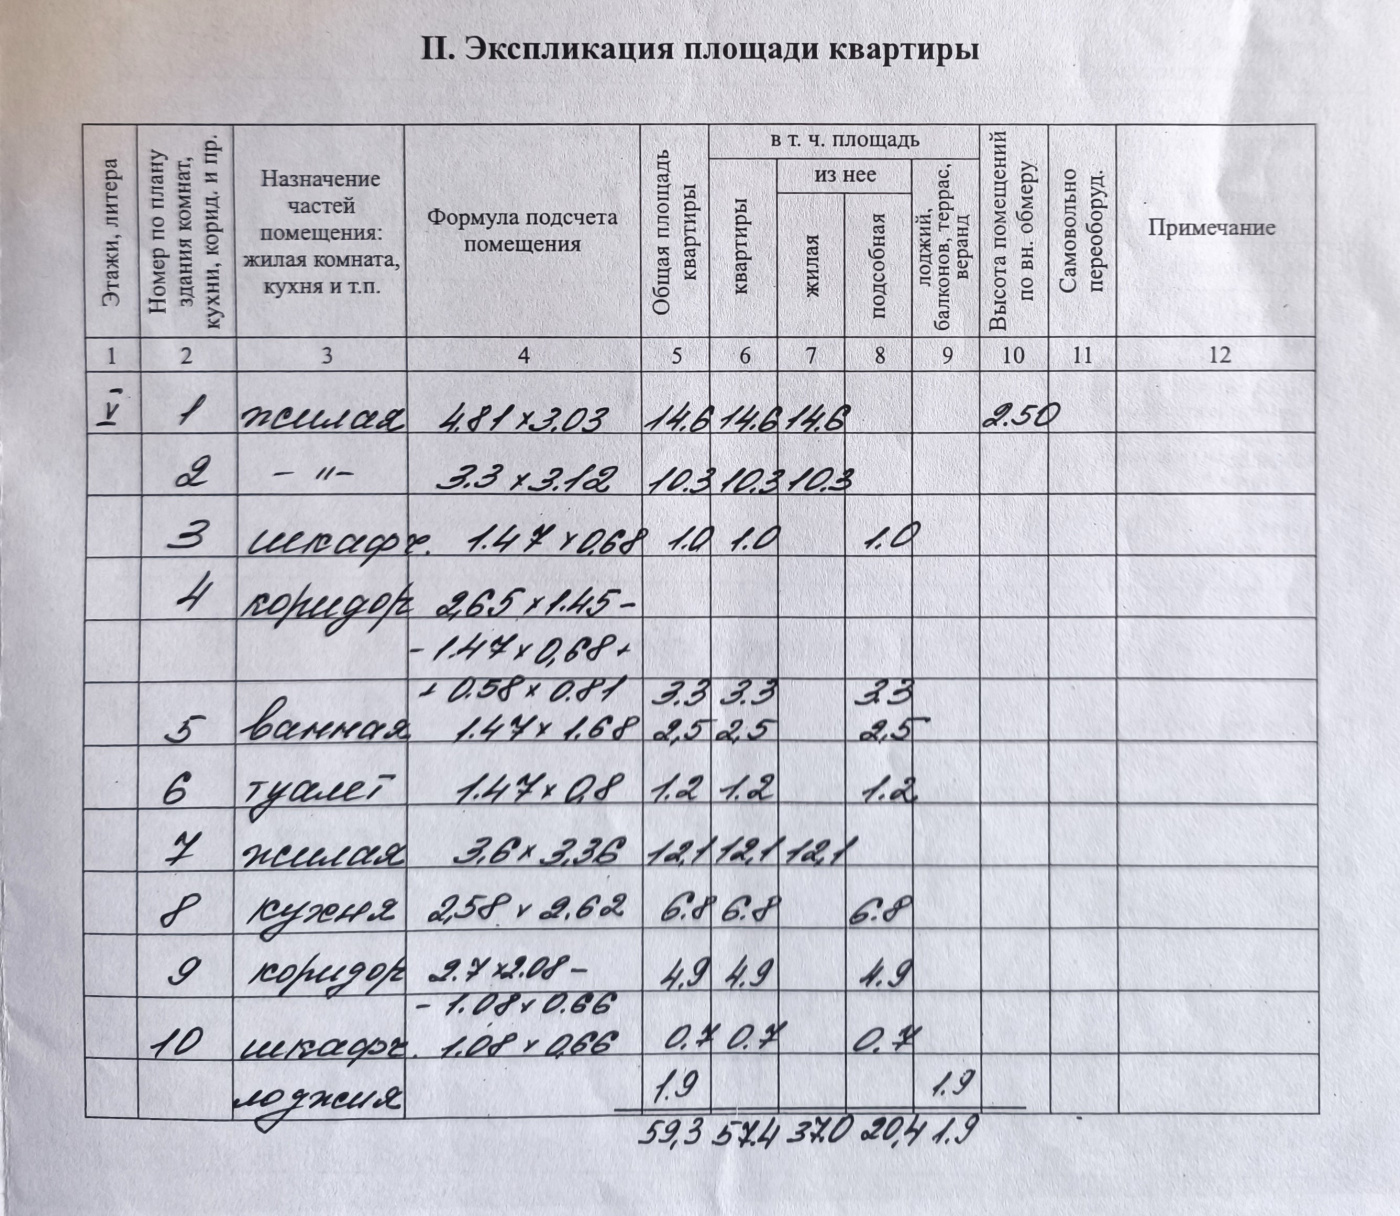 II. Экспликация площади квартиры
Этажи, литера
Номер по плану здания комнат, кухни, корид. и пр.
Назначение частей помещения: жилая комната, кухня и т.п.
Формула подсчета помещения
Общая площадь квартиры
в т. ч. площадь
из нее
квартиры
жилая
подсобная
лоджий, балконов, террас, веранд
Высота помещений по вн. обмеру
Самовольно переоборуд.
Примечание
1 2 3 4 5 6 7 8 9 10 11 12
V 1 жилая 4.81 x 3.03 14.6 14.6 14.6 2.50
2 – "– 3.3 x 3.12 10.3 10.3 10.3
3 шкаф. 1.47 x 0.68 1.0 1.0 1.0
4 коридор 2,65 x 1.45 –
– 1.47 x 0,68 +
+ 0.58 x 0.81 3.3 3.3 3.3
5 ванная 1.47 x 1.68 2,5 2,5 2.5
6 туалет 1.47 x 0,8 1.2 1.2 1.2
7 жилая 3,6 x 3,36 12,1 12,1 12,1
8 кухня 2,58 x 2.62 6.8 6.8 6.8
9 коридор 2.7 x 2.08 – 4.9 4.9 4.9
– 1.08 x 0.66
10 шкаф. 1.08 x 0,66 0.7 0.7 0.7
лоджия 1.9 1.9
59,3 57.4 37.0 20,4 1.9